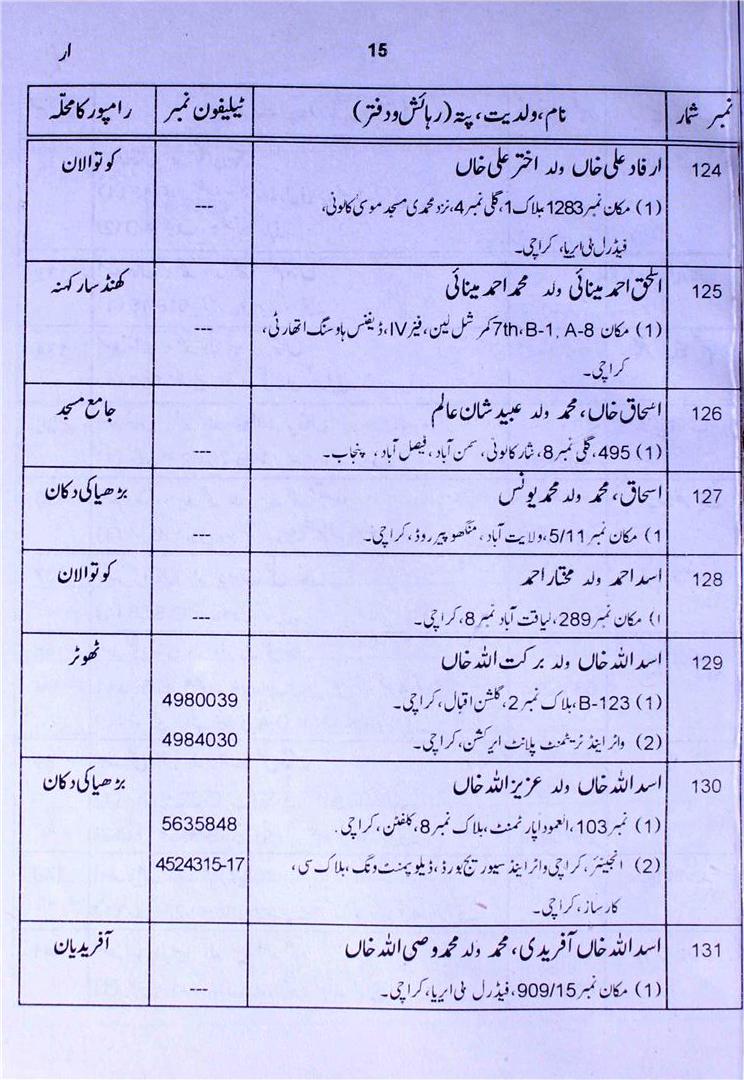 15
ار
نمبر شمار	نام، ولدیت، پتہ (رہائش و دفتر)	ٹیلیفون نمبر	رامپور کا محلّہ
124	ارفاد علی خاں ولد اختر علی خاں	کوتوالان
(1) مکان نمبر 1283 بلاک 1، گلی نمبر 4، نزد محمدی مسجد موسیٰ کالونی،	---
فیڈرل بی ایریا، کراچی۔
125	الحق احمد مینائی ولد محمد احمد مینائی	کھنڈسار کہنہ
(1) مکان 7th، B-1، A-8 کمرشل لین، فیز IV، ڈیفنس ہاوسنگ اتھارٹی،	---
کراچی۔
126	اسحاق خاں، محمد ولد عبید شان عالم	جامع مسجد
(1) 495، گلی نمبر 8، نثار کالونی، سمن آباد، فیصل آباد، پنجاب۔	---
127	اسحاق، محمد ولد محمد یونس	بڑھیا کی دکان
1) مکان نمبر 5/11، ولایت آباد، منگھو پیر روڈ، کراچی۔	---
128	اسد احمد ولد مختار احمد	کوتوالان
۱) مکان نمبر 289، لیاقت آباد نمبر 8، کراچی۔	---
129	اسد اللہ خاں ولد برکت اللہ خاں	ٹھوٹر
(1) B-123، بلاک نمبر 2، گلشن اقبال، کراچی۔	4980039
(2) واٹر اینڈ ٹریٹمنٹ پلانٹ ائرکشن، کراچی۔	4984030
130	اسد اللہ خاں ولد عزیز اللہ خاں	بڑھیا کی دکان
(1) نمبر 103، العمود اپارٹمنٹ، بلاک نمبر 8، کلفٹن، کراچی۔	5635848
(2) انجینئر، کراچی واٹر اینڈ سیوریج بورڈ، ڈیلوپمنٹ ونگ، بلاک سی،	4524315-17
کارساز، کراچی۔
131	اسد اللہ خاں آفریدی، محمد ولد محمد وصی اللہ خاں	آفریدیان
(1) مکان نمبر 909/15، فیڈرل بی ایریا، کراچی۔	---